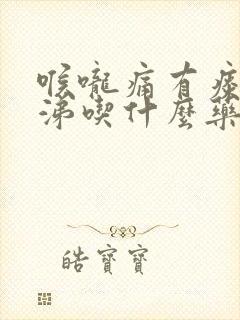 喉嚨痛有痰
涕喫什麼藥
皓寶寶